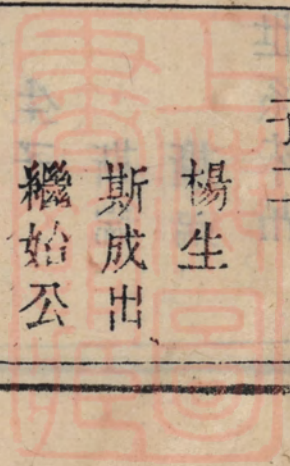 子二
楊生
斯成出
繼始公